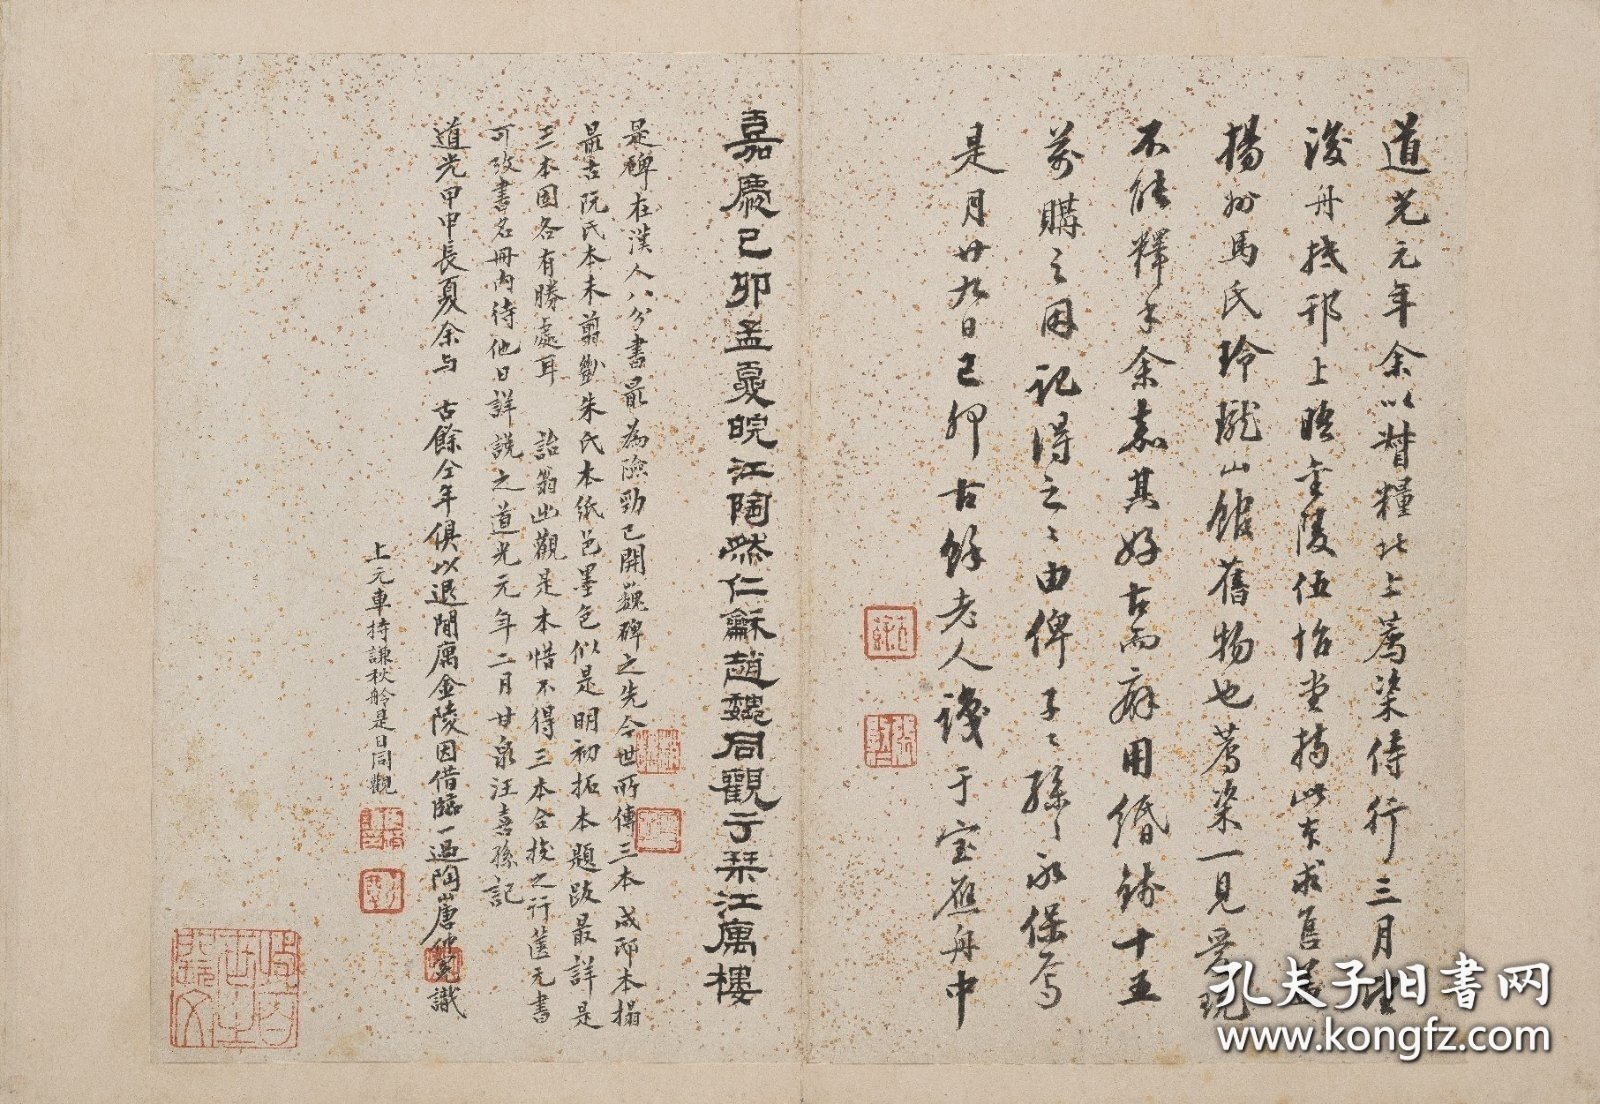 道光元年余以督糧北上蔫染侍行三月望
後舟抵邗上晤金陵伍怡堂持此本求售
揚州馬氏玲瓏山館舊物也蔫染一見
不能釋手余嘉其好古而癖用緡錢十五
萬購之用記得之之由俾子子孫孫永保焉
是月廿九日己卯古餘老人識于宝應舟中
嘉慶己卯孟夏皖江陶然仁龢趙魏同觀于琹江寓樓
是碑在漢人八分書最為險勁已開魏碑之先今世所傳三本成邸本搨
最古阮氏本未剪劙朱氏本紙色墨色似是明初拓本題跋最詳是
三本固各有勝處耳 詒翁出觀是本惜不得三本合挍之行篋无書
可攷書名冊內待他日詳說之道光元年二月甘泉汪喜孫記
道光甲申長夏余与 古餘仝年俱以退閒寓金陵因借臨一過陶崖識
上元車持謙秋舲是日同觀
孔夫子旧书网
www.kongfz.com